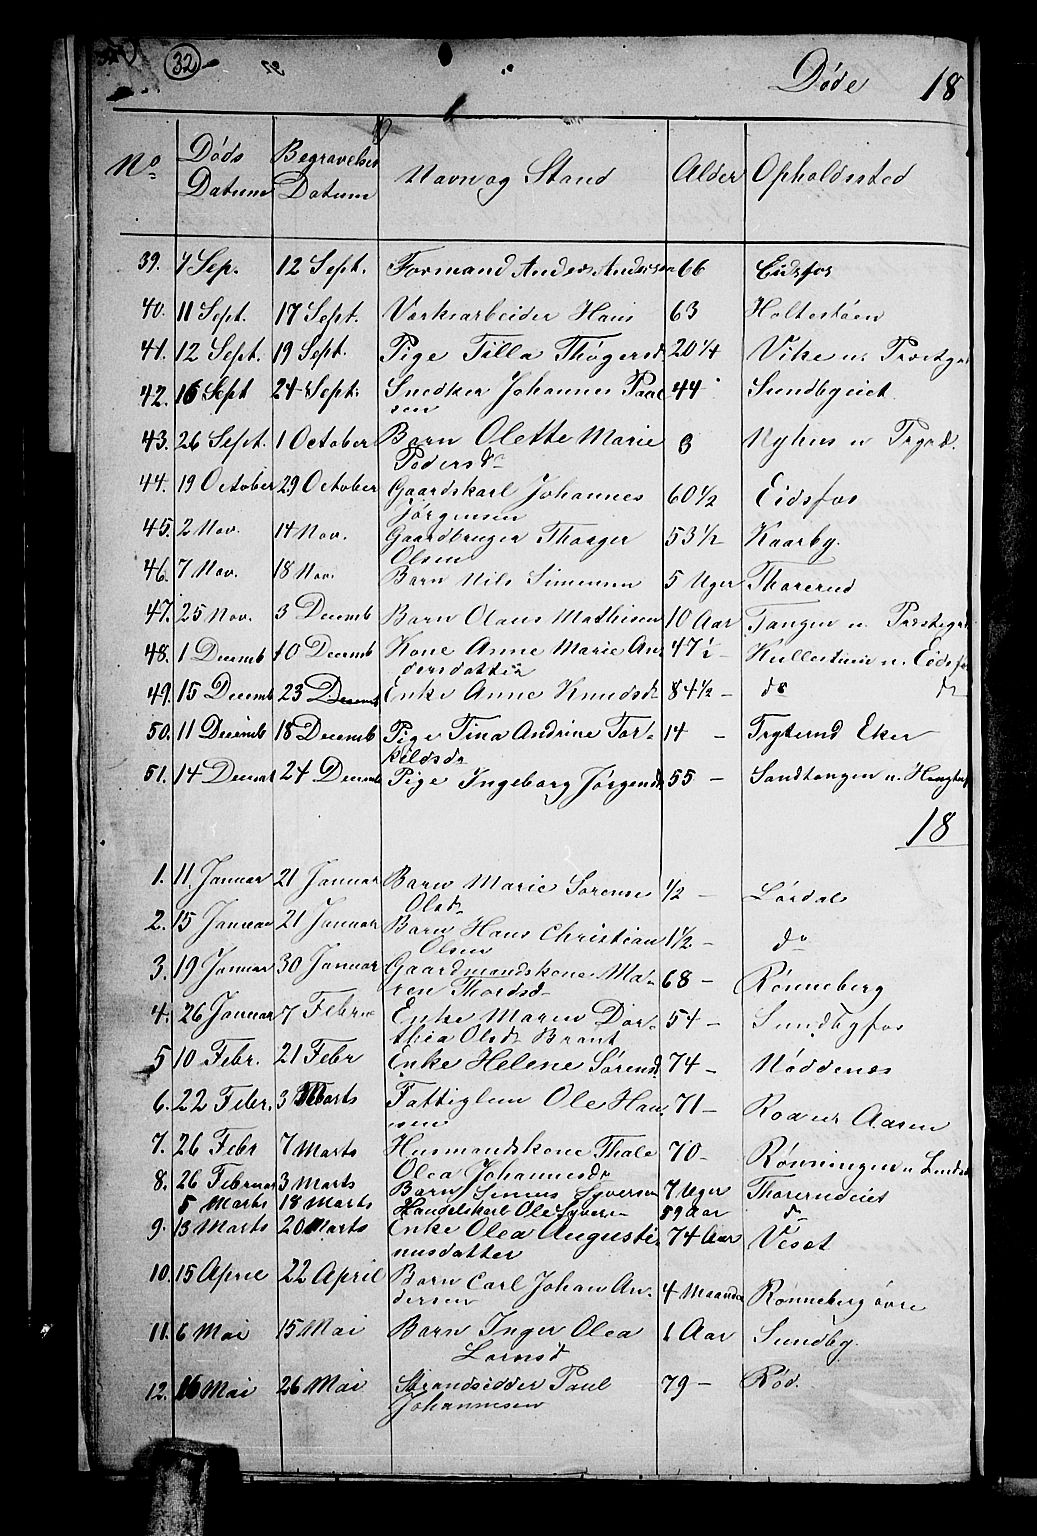 32
Døde 18
No Døds Datum Begravelses Datum Navn og Stand Alder Opholdssted
39. 7 Sep. 12 Sept. Formand Anders Andersen 66 Eidsfos
40. 11 Sept. 17 Sept. Værksarbeider Hans 63 Holtestøen
41. 12 Sept. 19 Sept. Pige Tilla Thøgersd 20 1/4 Vike u.
42. 16 Sept 24 Sept. Snedker Johannes Paul 44 Sundbyeiet
sen
43. 26 Sept. 1 October Barn Olette Marie 3 Nyhus u
Pedersdr
44. 19 October 29 October Gaardskarl Johannes 60 1/2 Eidsfos
Jørgensen
45. 2 Nov. 14 Nov. Gaardbruger Thorger 53 1/2 Kaarby.
Olsen
46. 7 Nov. 18 Nov. Barn Nils Simensen 5 Uger Thorerud
47. 25 Nov. 3 Decemb Barn Olaus Mathisen 10 Aar Tangen u.
48. 1 Decemb 10 Decemb Kone Anne Marie An 47 1/2 - u. Eidsfos
dersdatter
49. 15 Decemb 23 Decemb Enke Anne Knudsdr 84 1/2 - do do
50. 11 Decemb 18 Decemb Pige Tina Andrine Tor- 14 - Eker
kildsdr
51. 14 Decemb 24 Decemb Pige Ingeborg Jørgensdr 55 - Sandtangen u.
18
1. 11. Januar 21 Januar Barn Marie Sørense 1/2 - Lørdal
Olsdr
2. 15 Januar 21 Januar Barn Hans Christian 1 1/2 - do
Olsen
3. 19 Januar 30 Januar Gaardmandskone Ma- 68 - Rønneberg
ren Thordsd
4. 26 Januar 7 Febr Enke Maren Dor- 54 - Sundbyfos
thea Olsdr Brant
5 10 Febr. 21 Febr Enke Helene Sørensd 74 - Nøddenes
6. 22 Febr. 3 Marts Fattiglem Ole Han 71 - Aasen
sen
7. 26 Febr 7 Marts Husmandskone Thale 70 - Rønningen u
Olea Johannesdr
8. 26 Februar 3 Marts Barn Simen Syversen 7 Uger Thorerudeiet
5 Marts 18 Marts Handelskarl Ole Syvers 59 Aar do
9. 13 Marts 20 Marts Enke Olea Augusti 74 Aar Veset
nusdatter
10. 15 April 22 April Barn Carl Johan An- 4 Maaneder Rønneberg øvre
dersen
11. 6 Mai 15 Mai Barn Inger Olea 1 Aar Sundby.
Larsd
12. 16 Mai 26 Mai Strandsidder Paul 79 - Rød.
Johannesen